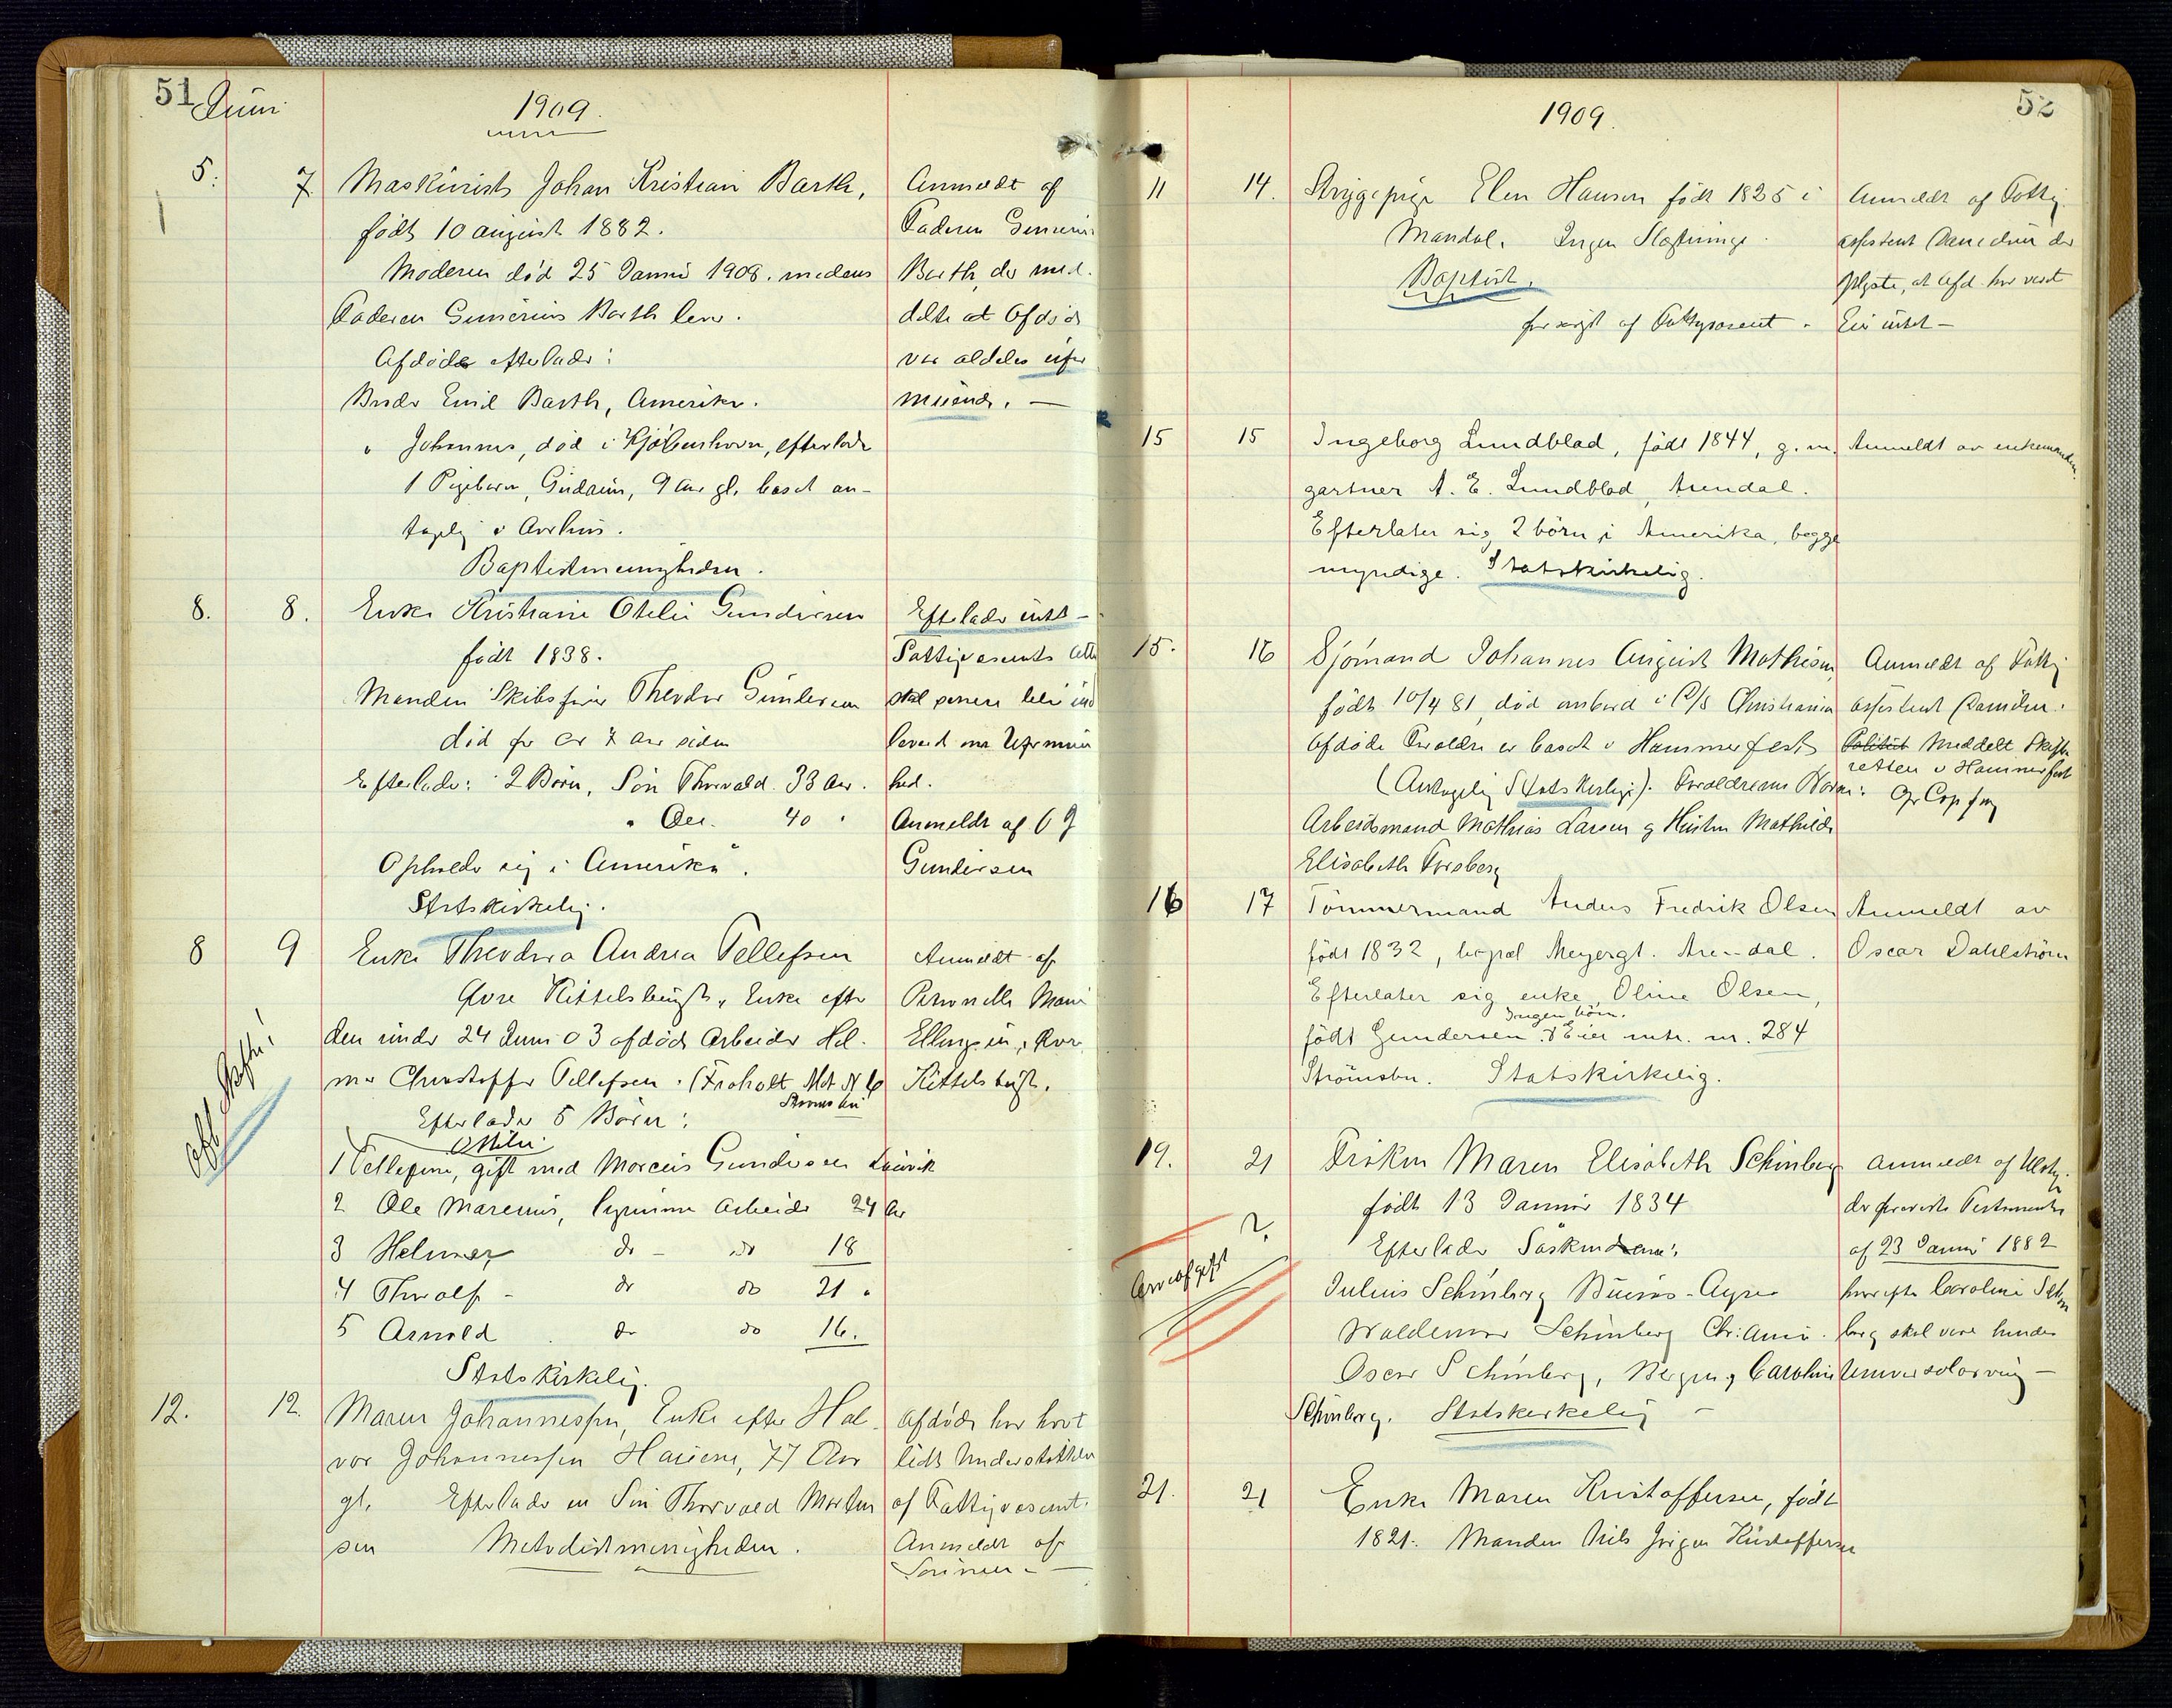 51 Juni
1909.
5. 7 Maskinist Johan Kristian Barth, Anmeldt af
født 10 august 1882. Faderen Gunerius
Moderen død 25 Januar 1908. medens Barth, der med-
Faderen Gunerius Barth lever. delte at Afdøde
Afdøde efterlader: var aldeles ufor
Broder Emil Barth, Amerika. muende. —
" Johannes, død i Kjøbenhavn, efterlader
1 Pigebarn, Gudrun, 9 Aar gl. bosat an-
tagelig i Aarhus.
Baptistmenigheden.
8. 8. Enke Kristiane Otelie Gundersen Efterlader intet -
født 1838. Fattigvæsenets
Manden Skibsfører Theodor Gundersen skal senere blive ind
død for ca 7 aar siden levert om Uformuen
Efterlader: 2 Børn, Søn Thorvald 33 Aar. hed.
" 40 " Anmeldt af
Opholder sig i Amerika. Gundersen
Statskirkelig.
8 9 Enke Theodora Andrea Tellefsen Anmeldt af
Kittelsbugt, Enke efter Petronelle Marie
den under 24 Juni 03 afdøde Arbeider Hel- Ellingsen,
mer Christoffer Tellefsen. (Froholt Mat N 6 Kittelsbugt.
Strømsbu
Efterlader 5 Børn:
Ottilie
1 Tellefine, gift med Marcus Gundersen Laurvik
2 Ole Marenius, Arbeider 24 Aar
3 Helmer do - do 18
4 Thorolf - do do 21 "
5 Arnold do do 16.
Statskirkelig.
12. 12. Maren Johannessen, Enke efter Hal- Afdøde har havt
vor Johannessen Hausene, 77 Aar lidt Understøttelse
gl. Efterlader en Søn Thorvald Morten af Fattigvæsenet.
sen Metodistmenigheden. Anmeldt af
Sønnen -
52
1909.
11 14. Strygepige Elen Hansen født 1835 i Anmeldt af Fattig
Mandal. Ingen Slægtninge. assistent Danielsen der
Baptist. oplyste, at afd. har vært
forsørget af Fattigvæsenet. Eier intet -
15 15 Ingeborg Lundblad, født 1844, g. m. Anmeldt av enkemanden
gartner A. E. Lundblad, Arendal.
Efterlater sig 2 børn i Amerika, begge
myndige. Statskirkelig.
15. 16 Sjømand Johannes August Mathisen, Anmeldt af Fattig
født 10/4 81, død ombord i D/S Christiania assistent Danielsen.
Afdøde Forældre er bosat i Hammerfest Politiet Meddelt Skifte
retten i Hammerfest
(Antagelig Statskirkelig). Forældrenes Navne:
Arbeidsmand Mathias Larsen og Hustru Mathilde
Elisabeth Forsberg
16 17 Tømmermand Anders Fredrik Olsen Anmeldt av
født 1832, bopæl Meyergt. Arendal. Oscar Dahlstrøm
Efterlater sig enke, Oline Olsen,
Ingen børn.
født Gundersen. Eier mtr. nr. 284
Strømsbu. Statskirkelig.
19. 21 Frøken Maren Elisabeth Schønberg Anmeldt af
født 13 Januar 1834 der foreviste Testamente
Efterlader Søskende: af 23 Januar 1882
Arveafgift Julius Schønberg Buenos-Ayres hvorefter Caroline Schøn
Waldemar Schønberg Chr:ania. berg skal være hendes
Oscar Schønberg, Bergen og Caroline Universalarving -
Schønberg. Statskirkelig -
21. 21 Enke Maren Kristoffersen, født
1821. Manden Nils Jørgen Kristoffersen